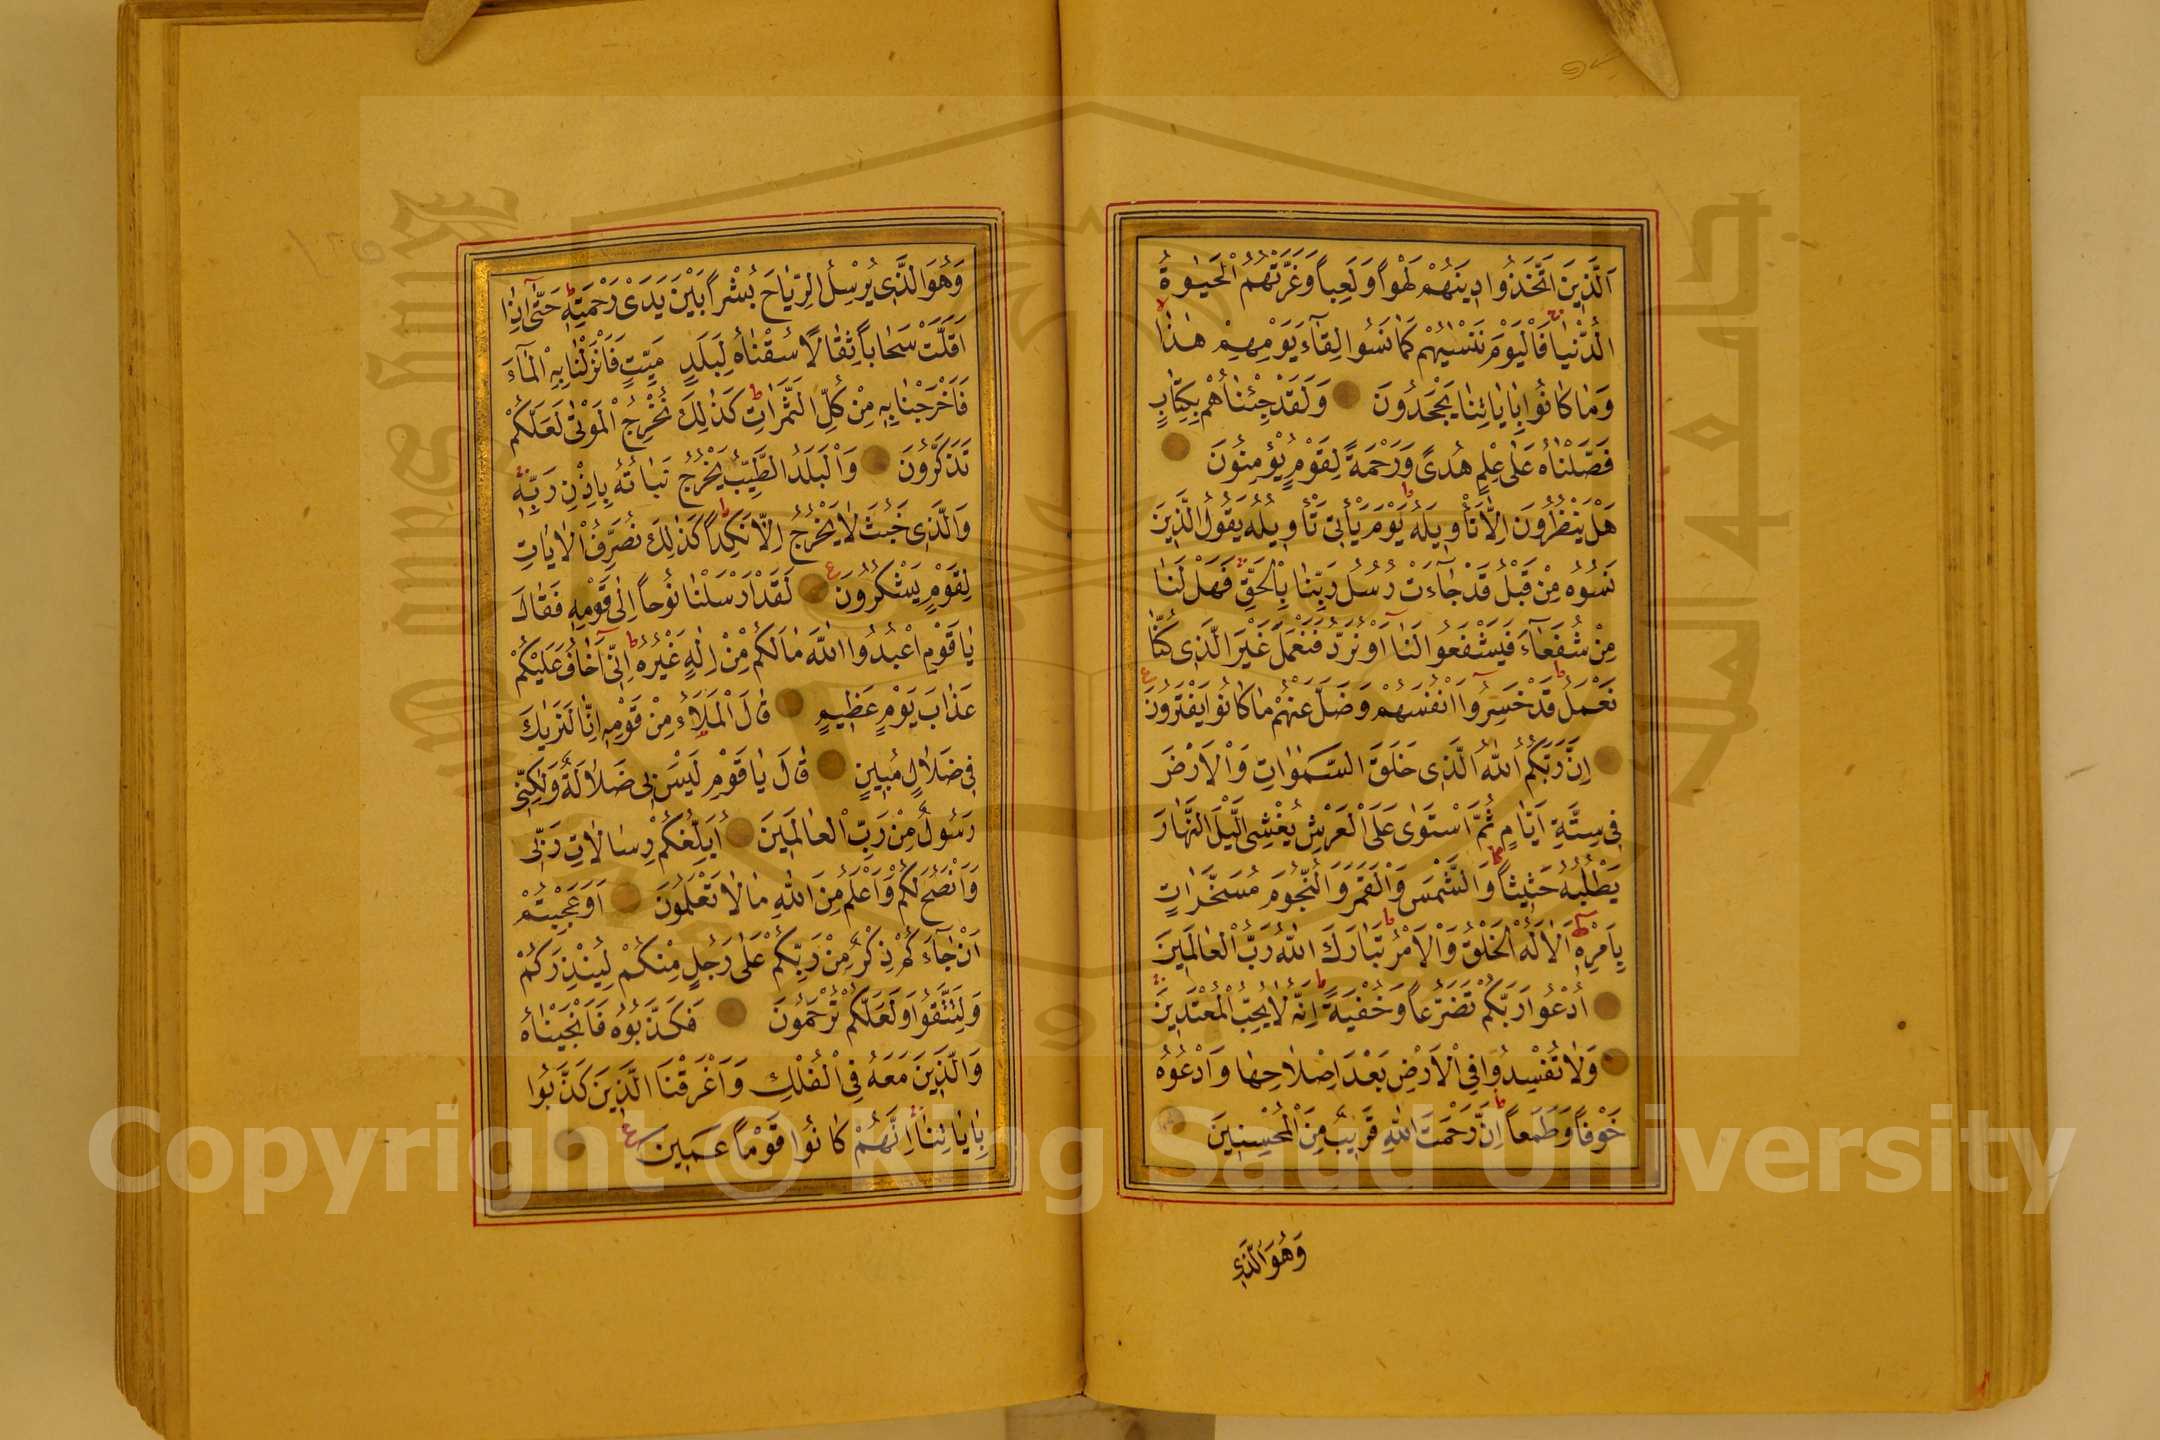 اَلَّذِينَ اتَّخَذُوا دِينَهُمْ لَهْواً وَلَعِباً وَغَرَّتْهُمُ الْحَيٰوةُ
الدُّنْيٰا فَالْيَوْمَ نَنْسٰيهُمْ كَمٰا نَسُوا لِقٰٓاءَ يَوْمِهِمْ هٰذٰا
وَمٰا كٰانُوا بِاٰيٰاتِنٰا يَجْحَدُونَ وَلَقَدْ جِئْنٰاهُمْ بِكِتٰابٍ
فَصَّلْنٰاهُ عَلٰى عِلْمٍ هُدىً وَرَحْمَةً لِقَوْمٍ يُؤْمِنُونَ
هَلْ يَنْظُرُونَ اِلّٰا تَأْوِيلَهُ يَوْمَ يَأْتِى تَأْوِيلُهُ يَقُولُ الَّذِينَ
نَسُوهُ مِنْ قَبْلُ قَدْ جٰٓاءَتْ رُسُلُ رَبِّنٰا بِالْحَقِّ فَهَلْ لَنٰا
مِنْ شُفَعٰٓاءَ فَيَشْفَعُوا لَنٰٓا اَوْ نُرَدُّ فَنَعْمَلَ غَيْرَ الَّذِى كُنّٰا
نَعْمَلُ قَدْ خَسِرُٓوا اَنْفُسَهُمْ وَضَلَّ عَنْهُمْ مٰا كٰانُوا يَفْتَرُونَ
اِنَّ رَبَّكُمُ اللهُ الَّذِى خَلَقَ السَّمٰوٰاتِ وَالْاَرْضَ
فِى سِتَّةِ اَيّٰامٍ ثُمَّ اسْتَوٰى عَلَى الْعَرْشِ يُغْشِى الَّيْلَ النَّهٰارَ
يَطْلُبُهُ حَثِيثاً وَالشَّمْسَ وَالْقَمَرَ وَالنُّجُومَ مُسَخَّرٰاتٍ
بِاَمْرِهِ اَلٰا لَهُ الْخَلْقُ وَالْاَمْرُ تَبٰارَكَ اللهُ رَبُّ الْعٰالَمِينَ
اُدْعُوا رَبَّكُمْ تَضَرُّعاً وَخُفْيَةً اِنَّهُ لٰا يُحِبُّ الْمُعْتَدِينَ
وَلٰا تُفْسِدُوا فِى الْاَرْضِ بَعْدَ اِصْلٰاحِهٰا وَادْعُوهُ
خَوْفاً وَطَمَعاً اِنَّ رَحْمَتَ اللهِ قَرِيبٌ مِنَ الْمُحْسِنِينَ
وَهُوَ الَّذِى
وَهُوَ الَّذِى يُرْسِلُ الرِّيٰاحَ بُشْراً بَيْنَ يَدَىْ رَحْمَتِهِ حَتّٰٓى اِذٰا
اَقَلَّتْ سَحٰاباً ثِقٰالًا سُقْنٰاهُ لِبَلَدٍ مَيِّتٍ فَاَنْزَلْنٰا بِهِ الْمٰٓاءَ
فَاَخْرَجْنٰا بِهِ مِنْ كُلِّ الثَّمَرٰاتِ كَذٰلِكَ نُخْرِجُ الْمَوْتٰى لَعَلَّكُمْ
تَذَكَّرُونَ وَالْبَلَدُ الطَّيِّبُ يَخْرُجُ نَبٰاتُهُ بِاِذْنِ رَبِّهِ
وَالَّذِى خَبُثَ لٰا يَخْرُجُ اِلّٰا نَكِداً كَذٰلِكَ نُصَرِّفُ الْاٰيٰاتِ
لِقَوْمٍ يَشْكُرُونَ لَقَدْ اَرْسَلْنٰا نُوحاً اِلٰى قَوْمِهِ فَقٰالَ
يٰا قَوْمِ اعْبُدُوا اللهَ مٰا لَكُمْ مِنْ اِلٰهٍ غَيْرُهُ اِنِّٓى اَخٰافُ عَلَيْكُمْ
عَذٰابَ يَوْمٍ عَظِيمٍ قٰالَ الْمَلَاُ مِنْ قَوْمِهِ اِنّٰا لَنَرٰيكَ
فِى ضَلٰالٍ مُبِينٍ قٰالَ يٰا قَوْمِ لَيْسَ بِى ضَلٰالَةٌ وَلٰكِنِّى
رَسُولٌ مِنْ رَبِّ الْعٰالَمِينَ اُبَلِّغُكُمْ رِسٰالٰاتِ رَبِّى
وَاَنْصَحُ لَكُمْ وَاَعْلَمُ مِنَ اللهِ مٰا لٰا تَعْلَمُونَ اَوَعَجِبْتُمْ
اَنْ جٰٓاءَكُمْ ذِكْرٌ مِنْ رَبِّكُمْ عَلٰى رَجُلٍ مِنْكُمْ لِيُنْذِرَكُمْ
وَلِتَتَّقُوا وَلَعَلَّكُمْ تُرْحَمُونَ فَكَذَّبُوهُ فَاَنْجَيْنٰاهُ
وَالَّذِينَ مَعَهُ فِى الْفُلْكِ وَاَغْرَقْنَا الَّذِينَ كَذَّبُوا
بِاٰيٰاتِنٰا اِنَّهُمْ كٰانُوا قَوْماً عَمِينَ
Copyright © King Saud University